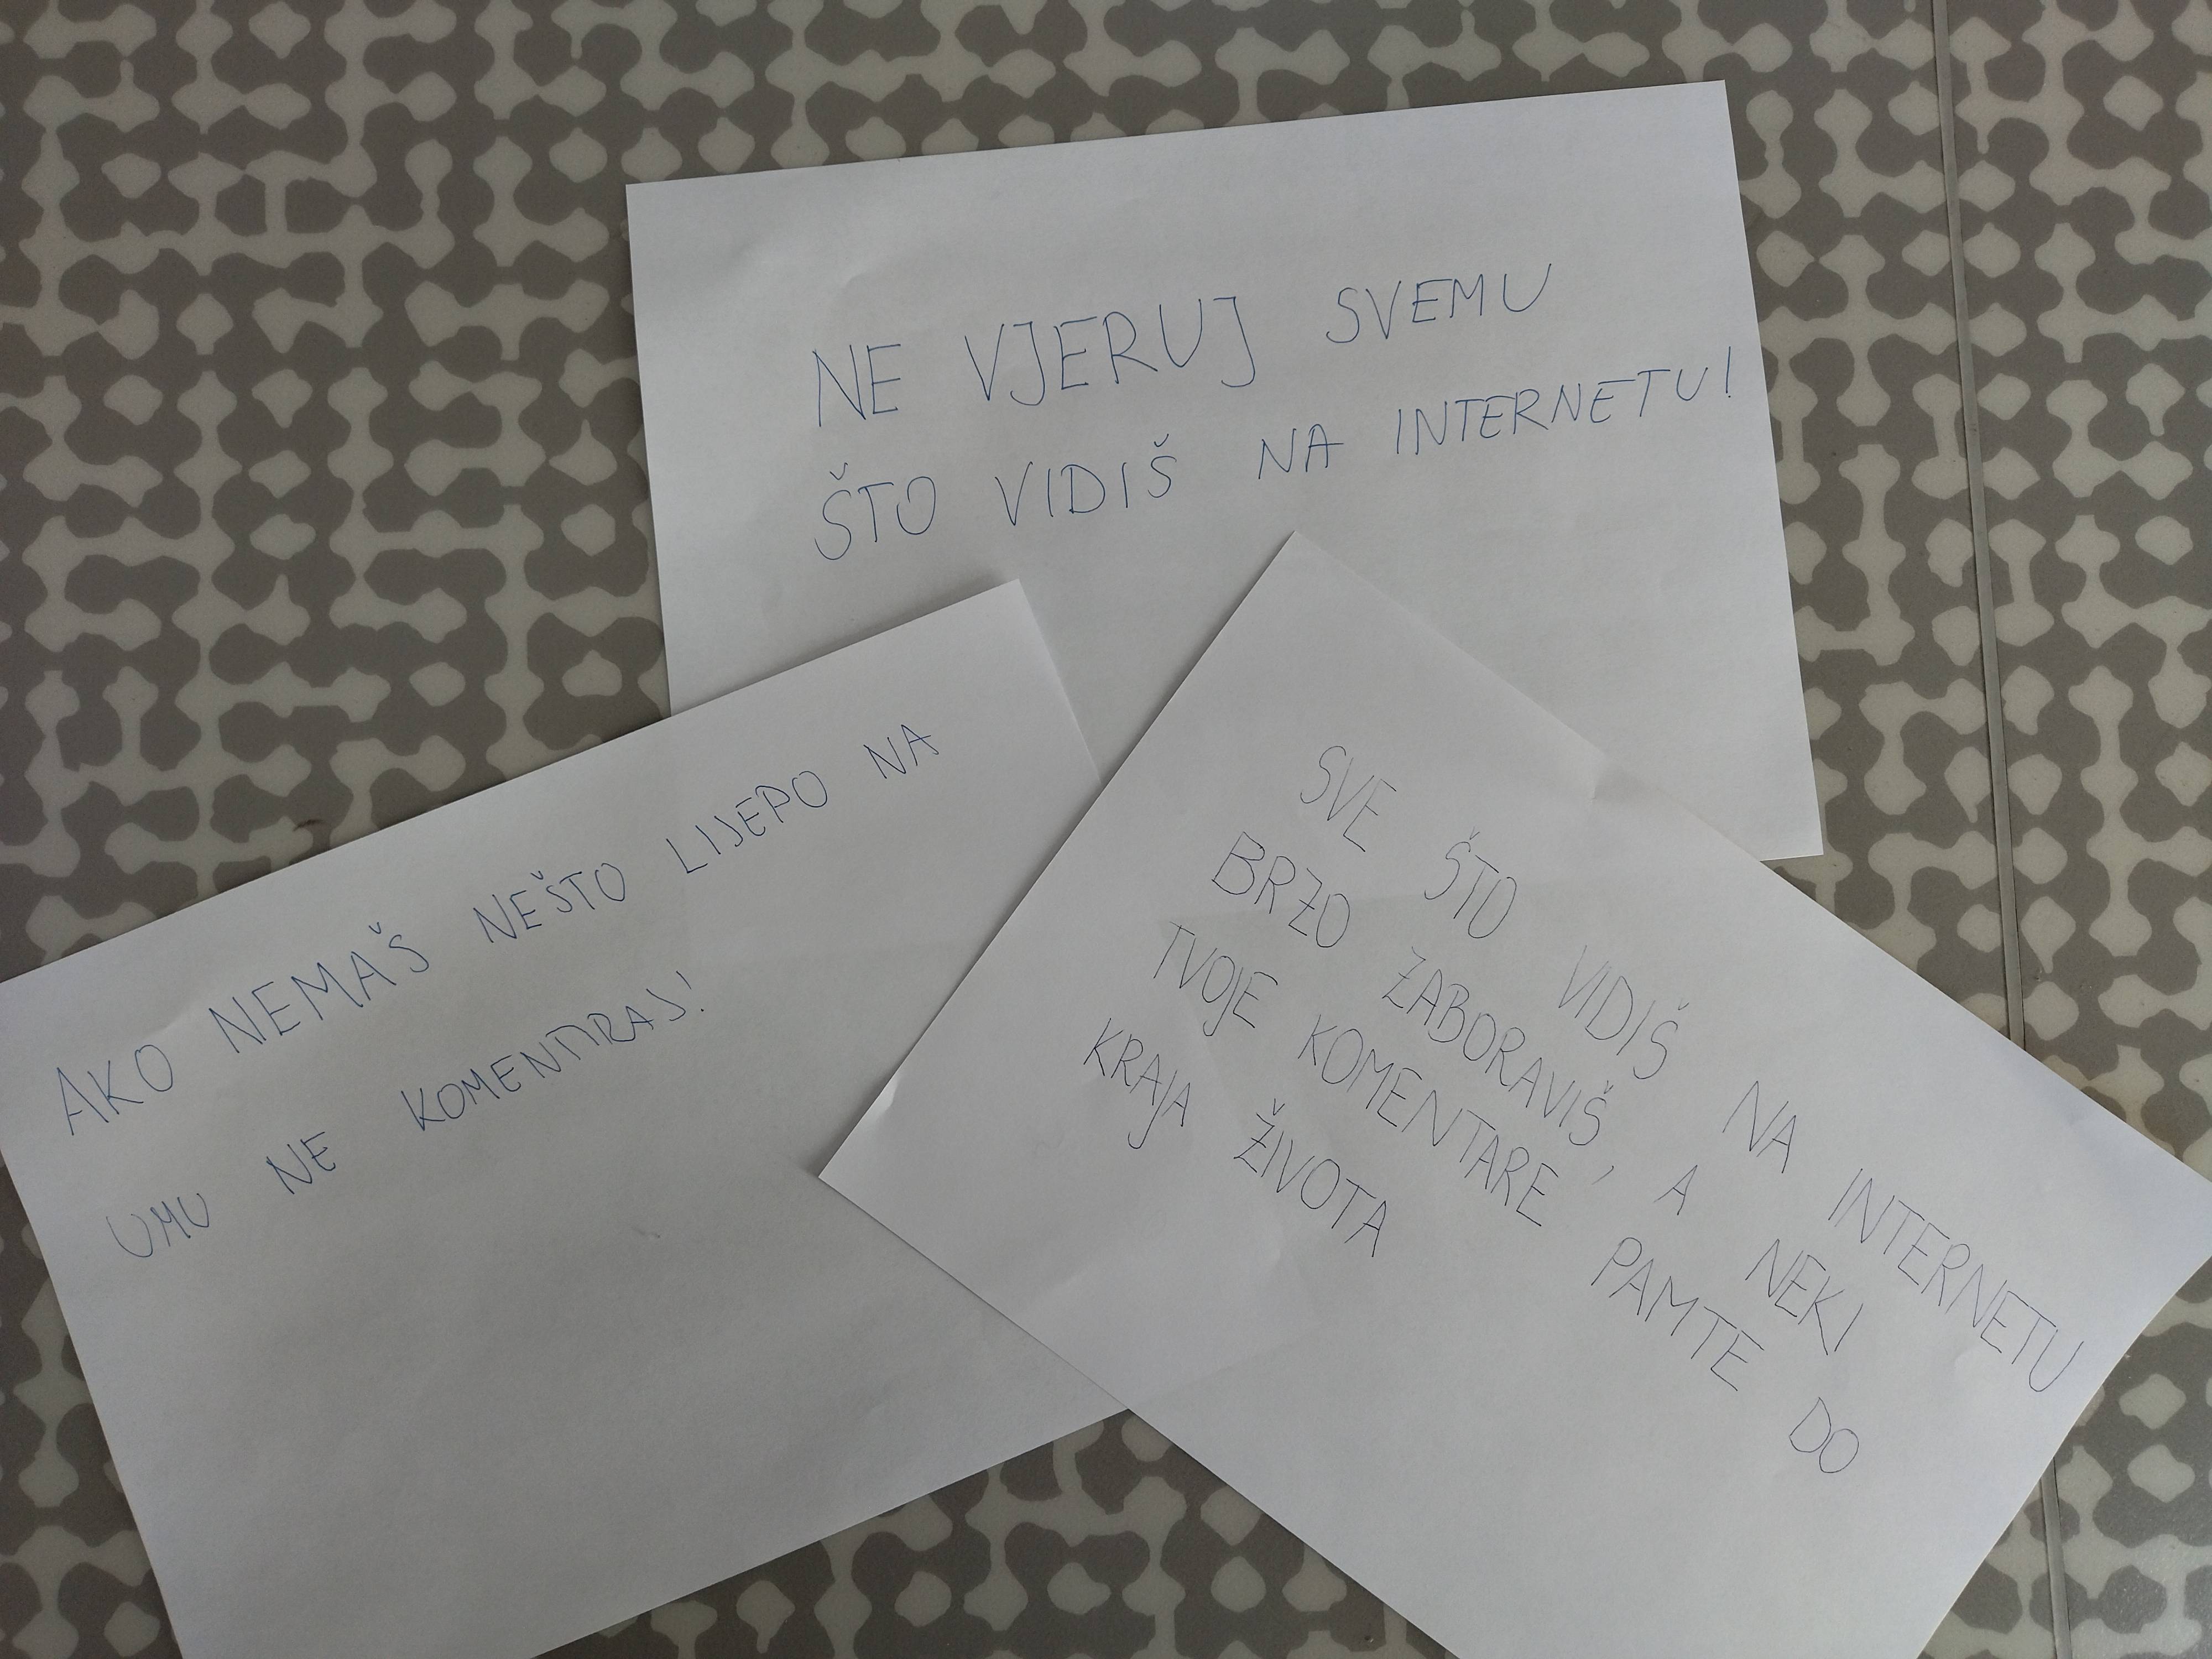 NE VJERUJ SVEMU
ŠTO VIDIŠ NA INTERNETU!
AKO NEMAŠ NEŠTO LIJEPO NA
UMU NE KOMENTIRAJ!
SVE ŠTO VIDIŠ NA INTERNETU
BRZO ZABORAVIŠ, A NEKI
TVOJE KOMENTARE PAMTE DO
KRAJA ŽIVOTA